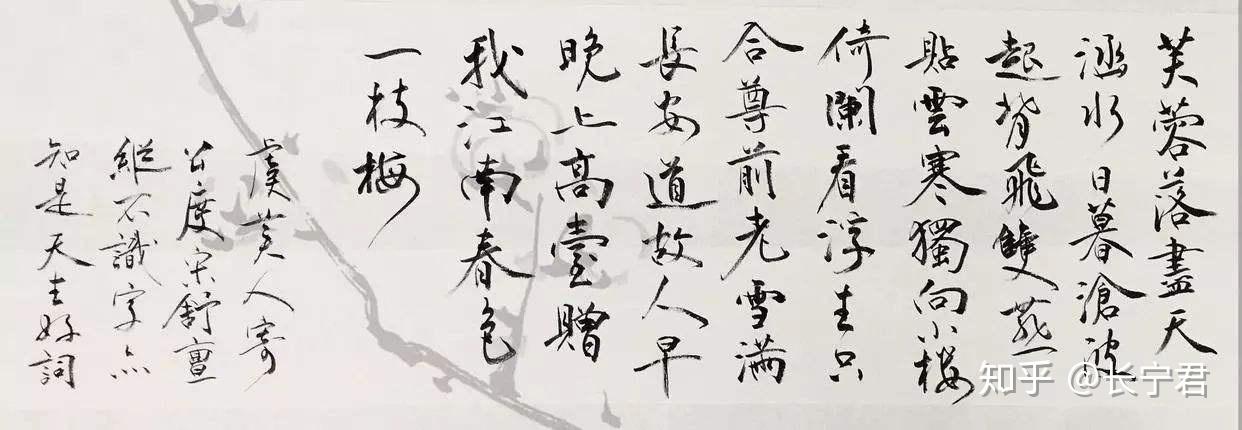 芙蓉落盡天
涵水日暮滄波
起背飛雙燕
貼雲寒獨向小樓
倚闌看浮生只
合尊前老雪滿
長安道故人早
晚上高臺贈
我江南春色
一枝梅
虞美人寄
公度宋舒亶
縱不識字亦
知是天生好詞
知乎 @长宁君